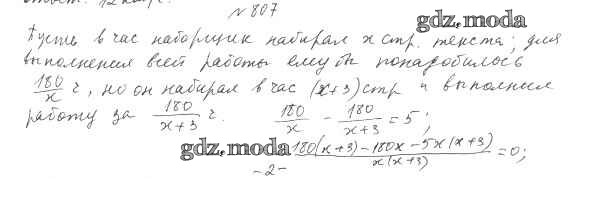 ответ: 12 км/ч.
№ 807
gdz.moda
Пусть в час наборщик набирал x стр. текста; для
выполнения всей работы ему бы понадобилось
180/x ч, но он набирал в час (x+3) стр и выполнил
работу за 180/(x+3) ч. 180/x - 180/(x+3) = 5;
gdz.moda (180(x+3) - 180x - 5x(x+3))/(x(x+3)) = 0;
-2-